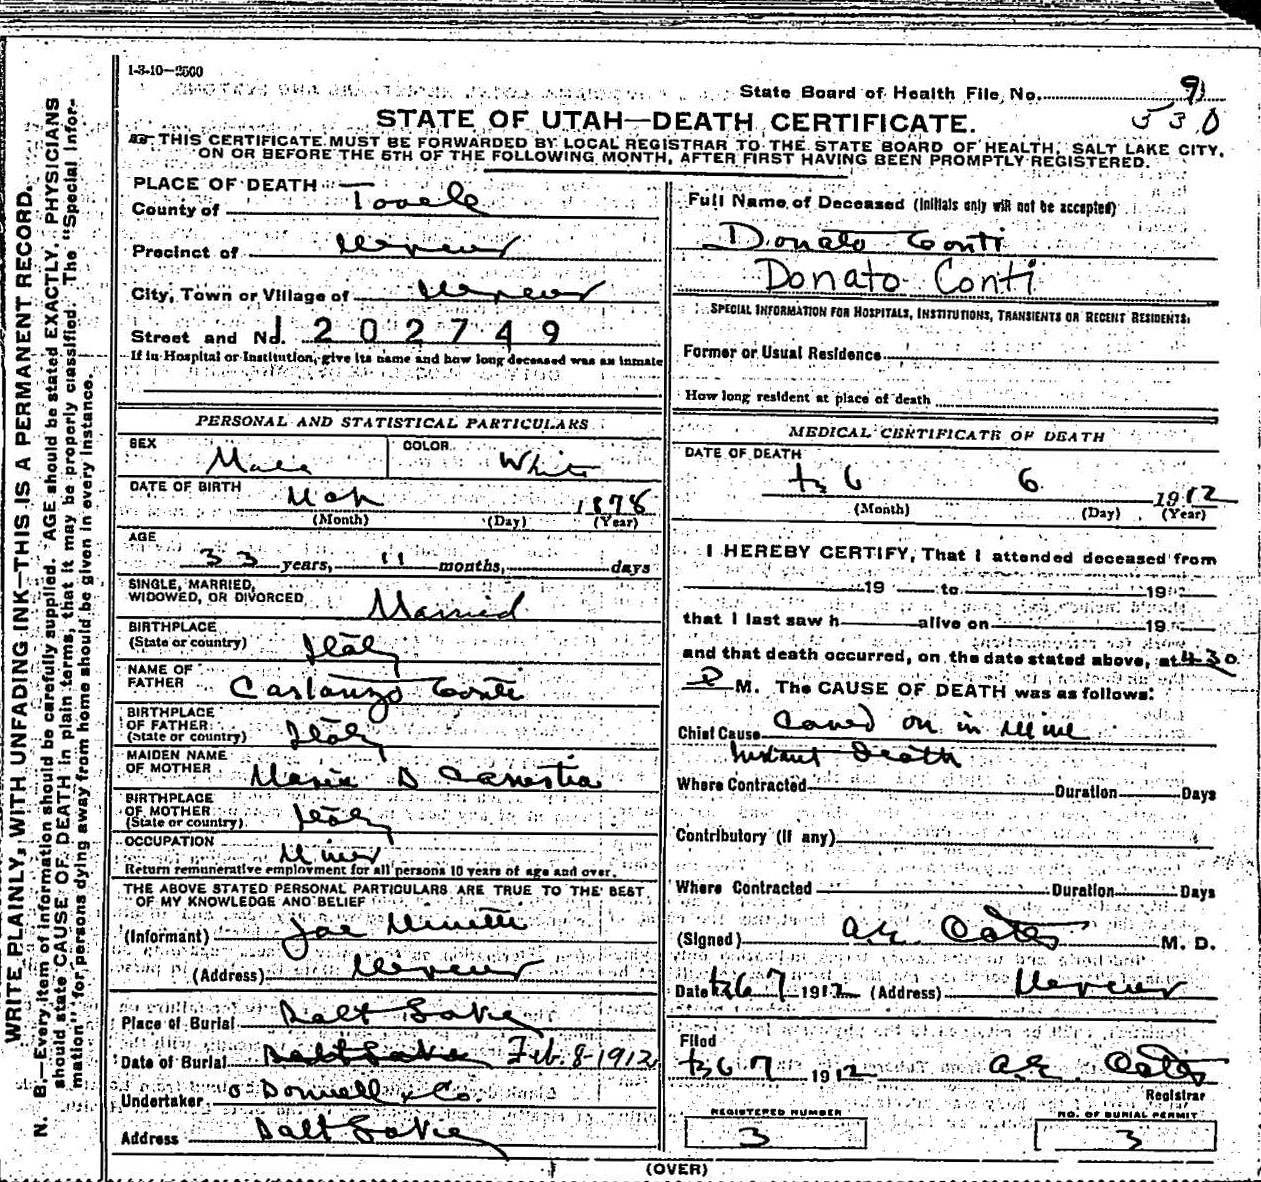 1-3-10-2500
State Board of Health File No. 91
530
STATE OF UTAH—DEATH CERTIFICATE.
THIS CERTIFICATE MUST BE FORWARDED BY LOCAL REGISTRAR TO THE STATE BOARD OF HEALTH, SALT LAKE CITY,
ON OR BEFORE THE 5TH OF THE FOLLOWING MONTH, AFTER FIRST HAVING BEEN PROMPTLY REGISTERED.
WRITE PLAINLY, WITH UNFADING INK—THIS IS A PERMANENT RECORD.
N. B.—Every item of information should be carefully supplied. AGE should be stated EXACTLY. PHYSICIANS
should state CAUSE OF DEATH in plain terms, that it may be properly classified. The "Special Infor-
mation" for persons dying away from home should be given in every instance.
PLACE OF DEATH
County of Tooele
Precinct of Mercur
City, Town or Village of Mercur
Street and No. 202749
If in Hospital or Institution, give its name and how long deceased was an inmate
PERSONAL AND STATISTICAL PARTICULARS
SEX Male COLOR White
DATE OF BIRTH Mch 1878
(Month) (Day) (Year)
AGE
33 years, 11 months, days
SINGLE, MARRIED,
WIDOWED, OR DIVORCED Married
BIRTHPLACE
(State or country) Italy
NAME OF
FATHER Castanzo Conti
BIRTHPLACE
OF FATHER
(State or country) Italy
MAIDEN NAME
OF MOTHER Maria D Canestra
BIRTHPLACE
OF MOTHER
(State or country) Italy
OCCUPATION
Miner
Return remunerative employment for all persons 10 years of age and over.
THE ABOVE STATED PERSONAL PARTICULARS ARE TRUE TO THE BEST
OF MY KNOWLEDGE AND BELIEF
(Informant) Joe
(Address) Mercur
Place of Burial Salt Lake
Date of Burial Salt Lake Feb. 8-1912
Undertaker O Donnell & Co.
Address Salt Lake
Full Name of Deceased (Initials only will not be accepted)
Donato Conti
Donato Conti
SPECIAL INFORMATION FOR HOSPITALS, INSTITUTIONS, TRANSIENTS OR RECENT RESIDENTS.
Former or Usual Residence
How long resident at place of death
MEDICAL CERTIFICATE OF DEATH
DATE OF DEATH
Feb 6 1912
(Month) (Day) (Year)
I HEREBY CERTIFY, That I attended deceased from
19 to 19
that I last saw h alive on 19
and that death occurred, on the date stated above, at 4-30
P M. The CAUSE OF DEATH was as follows:
Chief Cause Caved on in Mine
Instant Death
Where Contracted Duration Days
Contributory (if any)
Where Contracted Duration Days
(Signed) A.E. Oates M. D.
Date Feb 7 1912 (Address) Mercur
Filed
Feb 7 1912 A.E. Oates
Registrar
REGISTERED NUMBER
3
NO. OF BURIAL PERMIT
3
(OVER)